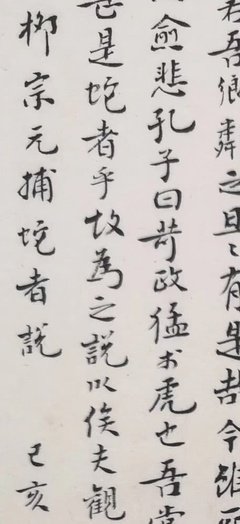 若吾鄉鄰之旦〻有是哉今雖死
愈悲孔子曰苛政猛於虎也吾嘗
甚是蛇者乎故為之說以俟夫觀
柳宗元捕蛇者說 己亥